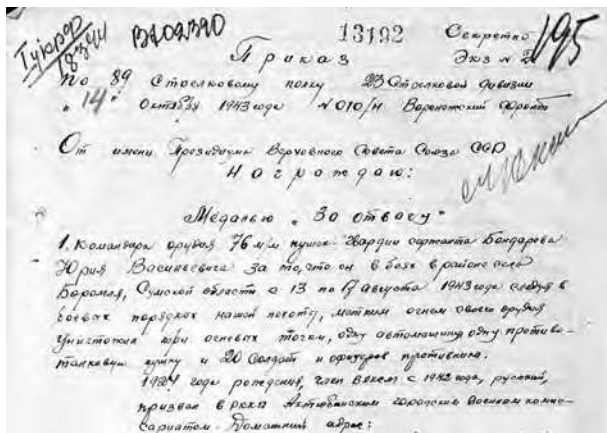 В202390
13192
Секретно
Экз № 2
195
Приказ
по 89 Стрелковому полку 23 Стрелковой дивизии
"14" Октября 1943 года № 010/н Воронежский Фронт
От имени Президиума Верховного Совета Союза ССР
Награждаю:
Медалью "За отвагу"
1. Командира орудия 76 м/м пушек гвардии сержанта Бондарева
Юрия Васильевича за то, что он в боях в районе села
Боромля, Сумской области с 13 по 17 августа 1943 года следуя в
боевых порядках нашей пехоты, метким огнем своего орудия
уничтожил три огневых точки, одну автомашину одну противо-
танковую пушку и 20 солдат и офицеров противника.
1924 года рождения, член ВЛКСМ с 1942 года, русский,
призван в РККА Актюбинским городским военным комис-
сариатом. Домашний адрес: